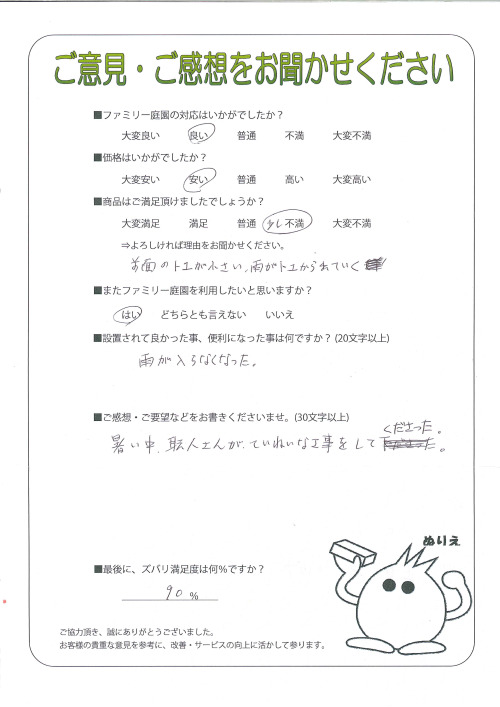 ご意見・ご感想をお聞かせください
■ファミリー庭園の対応はいかがでしたか？
大変良い 良い 普通 不満 大変不満
■価格はいかがでしたか？
大変安い 安い 普通 高い 大変高い
■商品はご満足頂けましたでしょうか？
大変満足 満足 普通 少し不満 大変不満
⇒よろしければ理由をお聞かせください。
前面のトユが小さい、雨がトユからもれていく
■またファミリー庭園を利用したいと思いますか？
はい どちらとも言えない いいえ
■設置されて良かった事、便利になった事は何ですか？(20文字以上)
雨が入らなくなった。
■ご感想・ご要望などをお書きくださいませ。(30文字以上)
くださった。
暑い中、職人さんが、ていねいな工事をして
ぬりえ
■最後に、ズバリ満足度は何%ですか？
90 %
ご協力頂き、誠にありがとうございました。
お客様の貴重な意見を参考に、改善・サービスの向上に活かして参ります。